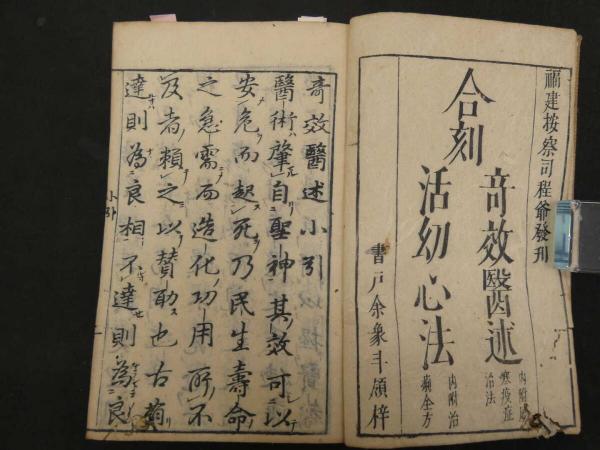 福建按察司程爺發刊
合刻
奇效醫述
內附
寒疫症
治法
活幼心法
內附治
癩全方
書戶余象斗領梓
奇效醫述小引
醫術肇自聖神其效可以
安危而起死乃民生壽命
之急需而造化功用所不
及者賴之以贊助也古有
達則為良相不達則為良
小引